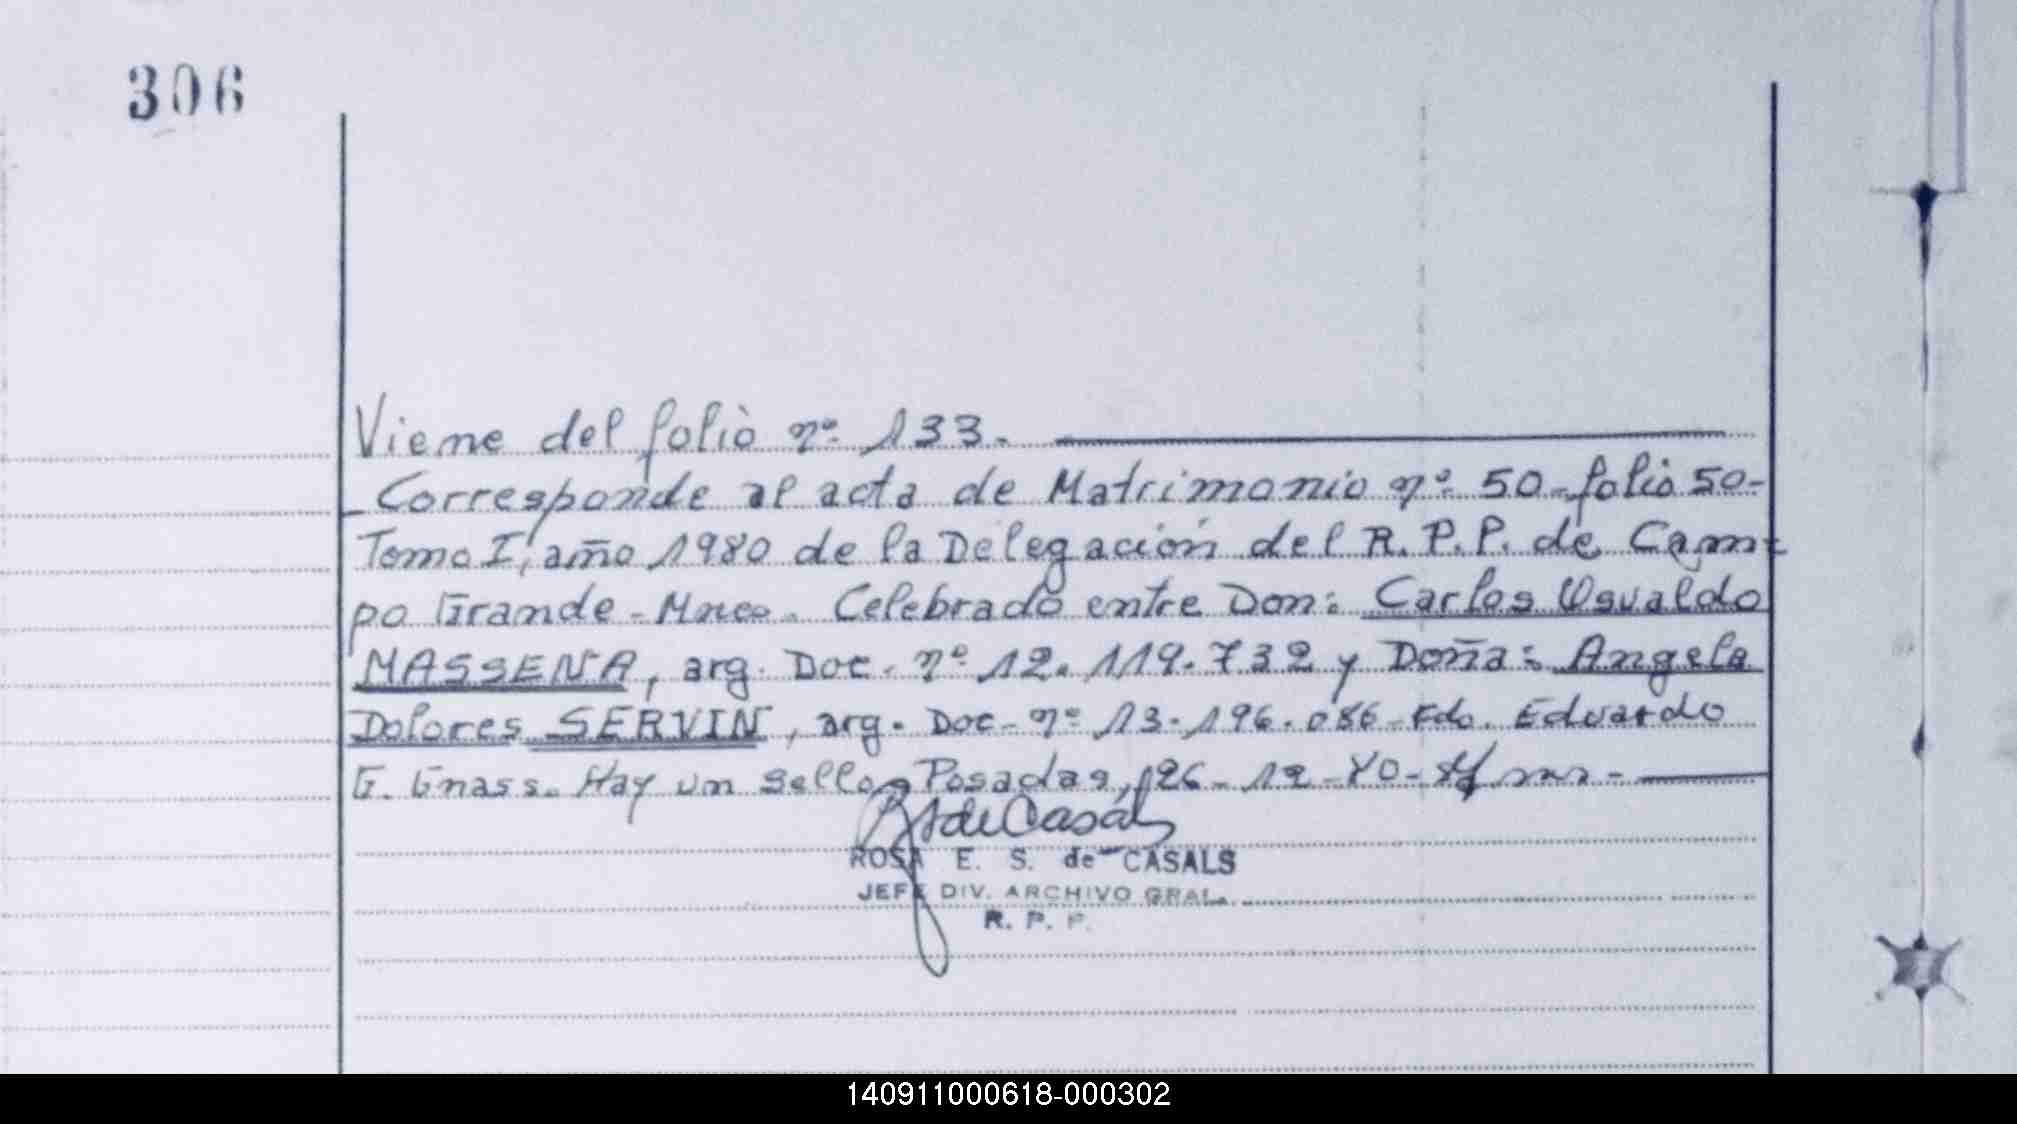 306
Viene del folio nº 133.
Corresponde al acta de Matrimonio nº 50-folio 50-
Tomo I, año 1980 de la Delegación del R.P.P. de Cam-
po Grande - Mnes. Celebrado entre Don: Carlos Osvaldo
MASSENA, arg. Doc. nº 12.119.732 y Doña: Angela
Dolores SERVIN, arg. Doc- nº 13.196.086- Fdo. Eduardo
G. Gnass. Hay un sello, Posadas, 26-12-80-
ROSA E. S. de CASALS
JEFE DIV. ARCHIVO GRAL.
R. P. P.
140911000618-000302